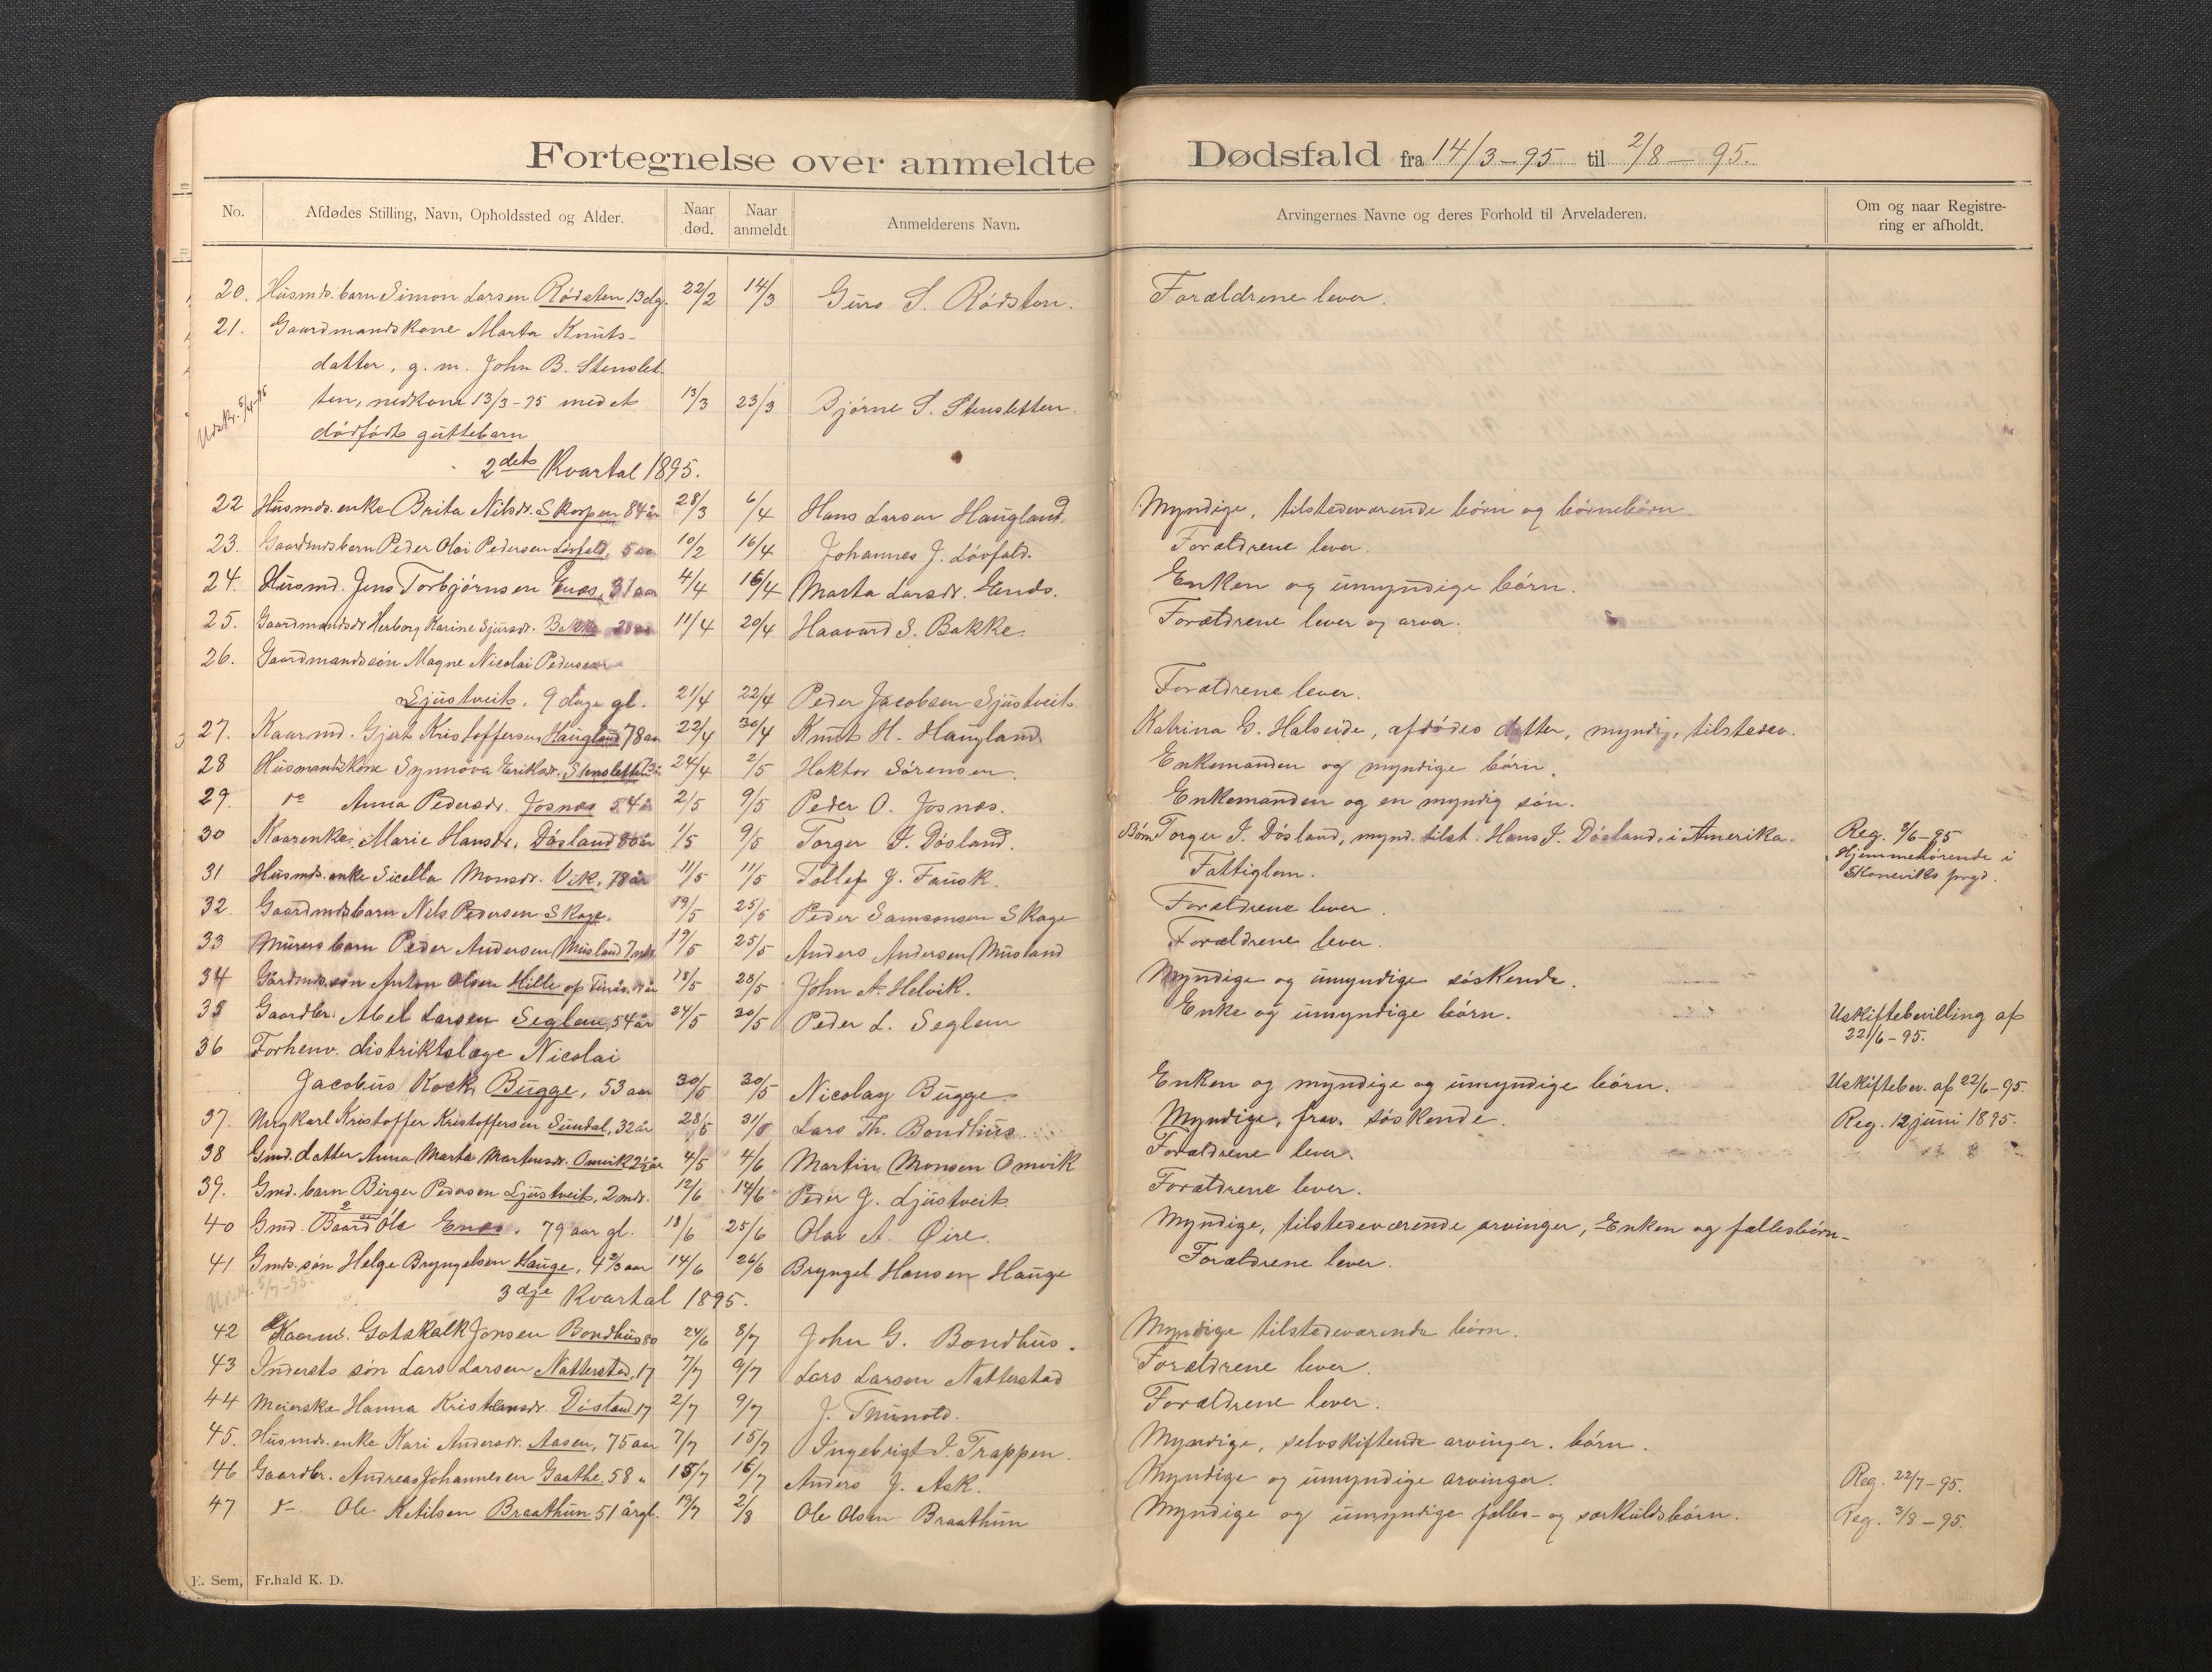 Fortegnelse over anmeldte Dødsfald fra 14/3-95 til 2/8-95.
No. Afdødes Stilling, Navn, Opholdssted og Alder. Naar død. Naar anmeldt. Anmelderens Navn. Arvingernes Navne og deres Forhold til Arveladeren. Om og naar Registrering er afholdt.
20. Husmds. barn Simon Larsen Rödsten 13 dg. 22/2 14/3 Guro S. Rödsten. Forældrene lever.
21. Gaardmandskone Marta Knuts-
datter, g. m. John B. Stenslet-
Udskr. 5/4-95 ten, nedkom 13/3-95 med et 13/3 23/3 Bjørne S. Stensletten.
dödfödt guttebarn
2det Kvartal 1895.
22 Husmds. enke Brita Nilsdr. Skorpen 84 år 28/3 6/4 Hans Larsen Haugland. Myndige, tilstedeværende börn og börnebörn.
23. Gaardmdsbarn Peder Olai Pedersen Lövfald, 5 aar 10/2 16/4 Johannes J. Lövfald. Forældrene lever.
24. Husmd. Jens Torbjörnsen Enæs, 31 aar 4/4 16/4 Marta Larsdr. Enæs. Enken og umyndige börn.
25. Gaardmandsdr Herborg Karine Sjursdr. Bakke 11/4 20/4 Haavard S. Bakke. Forældrene lever og arver.
26. Gaardmandssön Magne Nicolai Pedersen
Ljustveit, 9 dage gl. 21/4 22/4 Peder Jacobsen Ljustveit Forældrene lever.
27. Kaarmd. Gjert Kristoffersen Haugland 78 aar 22/4 30/4 Knut H. Haugland. Katrina G. Halseide, afdödes datter, myndig, tilstedev.
28 Husmandskone Synnöva Eriksdr. Stensletten 24/4 2/5 Hektor Sörensen. Enkemanden og myndige börn.
29. do Anna Pedersdr. Josnæs 54 år 2/5 9/5 Peder O. Josnæs. Enkemanden og en myndig sön.
30 Kaarenke Marie Hansdr. Dösland 80 år 1/5 9/5 Torger I. Dösland. Börn Torger I. Dösland, mynd. tilst. Hans I. Dösland, i Amerika. Reg. 3/6-95
Hjemmehörende i
31 Husmds. enke Sicella Monsdr. Vik, 78 år 11/5 11/5 Tollef G. Fausk. Fattiglem. Skoneviks prgd.
32. Gaardmdsbarn Nils Pedersen Skage. 19/5 25/5 Peder Samsonsen Skage Forældrene lever.
33 Murers barn Peder Andersen Musland 7 mdr. 19/5 25/5 Anders Andersen Musland Forældrene lever.
34 Gårdmds. sön Anton Olsen Hille 18/5 28/5 John A. Helvik. Myndige og umyndige söskende.
35 Gaardbr. Abel Larsen Seglem, 54 år 24/5 30/5 Peder L. Seglem Enke og umyndige börn. Uskiftebevilling af
22/6-95.
36 Forhenv. distriktslæge Nicolai
Jacobus Kock Bugge, 53 aar 30/5 30/5 Nicolay Bugge. Enken og myndige og umyndige börn. Uskiftebev. af 22/6-95.
37. Ungkarl Kristoffer Kristoffersen Sundal, 32 år 28/5 31/5 Lars Th. Bondhus Myndige, frav. söskende. Reg. 12 juni 1895.
38 Gmd. datter Anna Marta Martinsdr. Omvik 2½ år 4/5 4/6 Martin Monsen Omvik Forældrene lever.
39. Gmd. barn Birger Pedersen Ljustveit, 2 mdr. 12/6 14/6 Peder J. Ljustveit Forældrene lever.
40 Gmd. Baardsen Ole Enæs. 79 aar gl. 18/6 25/6 Olav A. Øire. Myndige, tilstedeværende arvinger, Enken og fællesbörn.
41 Gmds. sön Helge Bryngelsen Hauge, 4 2/3 aar 14/6 26/6 Bryngel Hansen Hauge Forældrene lever.
Udskr. 5/7-95.
3dje Kvartal 1895.
42 Kaarm. Gotskalk Jonsen Bondhus 80 24/6 8/7 John G. Bondhus. Myndige tilstedeværende börn.
43 Indersts sön Lars Larsen Natterstad, 17 7/7 9/7 Lars Larsen Natterstad Forældrene lever.
44 Meierske Hanna Kristensdr. 17 2/7 9/7 J. Forældrene lever.
45. Husmds. enke Kari Andersdr. Aasen, 75 aar 7/7 15/7 Ingebrigt I. Trappen. Myndige, selvskiftende arvinger. börn.
46 Gaardbr. Andreas Johannesen Gaathe 58 " 15/7 16/7 Anders J. Ask. Myndige og umyndige arvinger. Reg. 22/7-95.
47 do Ole Ketilsen Braathun 51 år gl. 19/7 2/8 Ole Olsen Braathun Myndige og umyndige fælles- og særkuldsbörn. Reg. 3/8-95.
E. Sem, Fr.hald K. D.